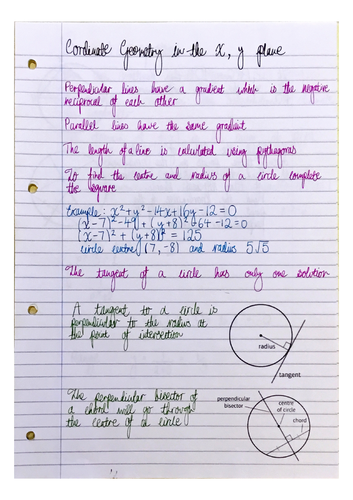 Cordinate Geometry in the x, y plane
Perpendicular lines have a gradient which is the negative
reciprocal of each other
Parallel lines have the same gradient
The length of a line is calculated using pythagoras
To find the centre and radius of a circle complete
the square
Example: x² + y² - 14x + 16y - 12 = 0
(x - 7)² - 49 + (y + 8)² - 64 - 12 = 0
(x - 7)² + (y + 8)² = 125
circle centre (7, -8) and radius 5√5
The tangent of a circle has only one solution
A tangent to a circle is
perpendicular to the radius at
the point of intersection
radius
tangent
The perpendicular bisector of
a chord will go through
the centre of a circle
perpendicular
bisector
centre
of circle
chord